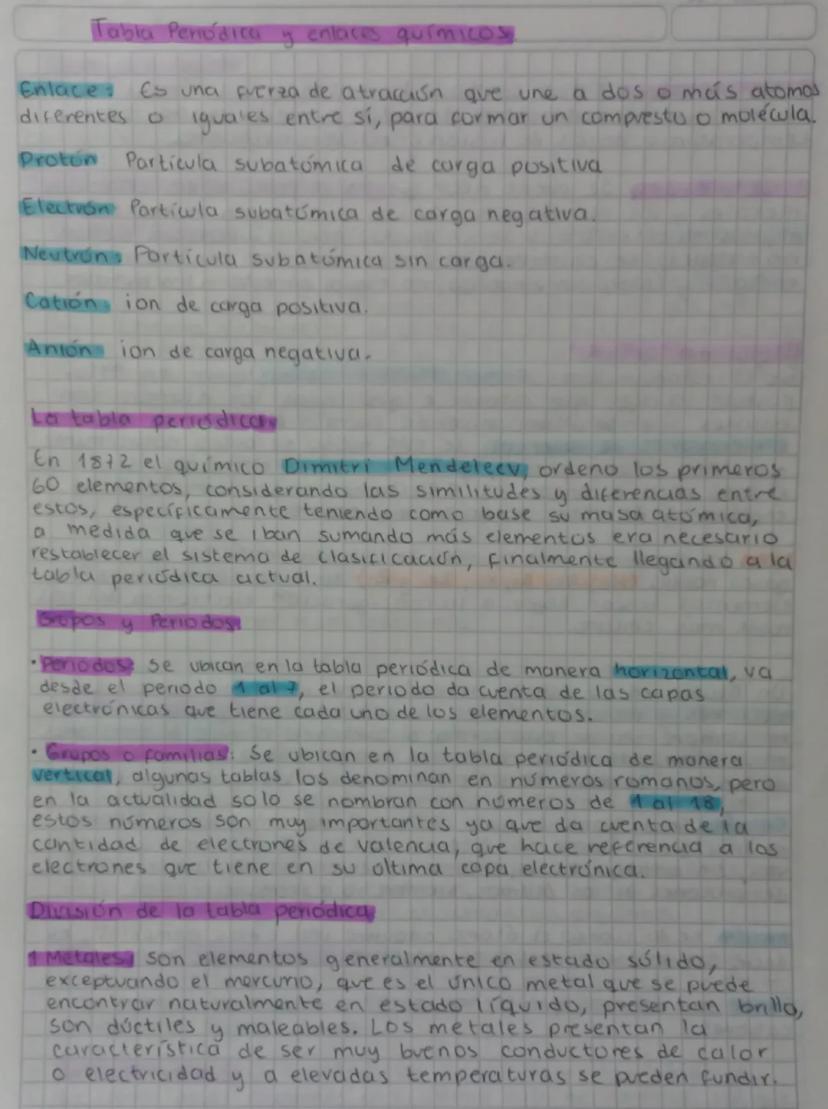 Tabla Periódica y enlaces químicos
Enlace: Es una fuerza de atracción que une a dos o más atomos
diferentes o iguales entre sí, para formar un compuesto o molécula.
Protón Partícula subatómica de carga positiva
Electrón Partícula subatómica de carga negativa.
Neutrón: Partícula subatómica sin carga.
Catión: ion de carga positiva.
Anión: ion de carga negativa.
La tabla periódica:
En 1872 el químico Dimitri Mendeleev, ordeno los primeros
60 elementos, considerando las similitudes y diferencias entre
estos, específicamente teniendo como base su masa atómica,
a medida que se iban sumando más elementos era necesario
restablecer el sistema de clasificación, finalmente llegando a la
tabla periódica actual.
Grupos y Periodos:
• Periodos: Se ubican en la tabla periódica de manera horizontal, va
desde el periodo 1 al 7, el periodo da cuenta de las capas
electrónicas que tiene cada uno de los elementos.
• Grupos o familias: Se ubican en la tabla periódica de manera
vertical, algunas tablas los denominan en números romanos, pero
en la actualidad solo se nombran con números de 1 al 18,
estos números son muy importantes ya que da cuenta de la
cantidad de electrones de valencia, que hace referencia a los
electrones que tiene en su última capa electrónica.
División de la tabla periódica:
1 Metales: Son elementos generalmente en estado sólido,
exceptuando el mercurio, que es el único metal que se puede
encontrar naturalmente en estado líquido, presentan brillo,
son dúctiles y maleables. Los metales presentan la
característica de ser muy buenos conductores de calor
o electricidad y a elevadas temperaturas se pueden fundir.